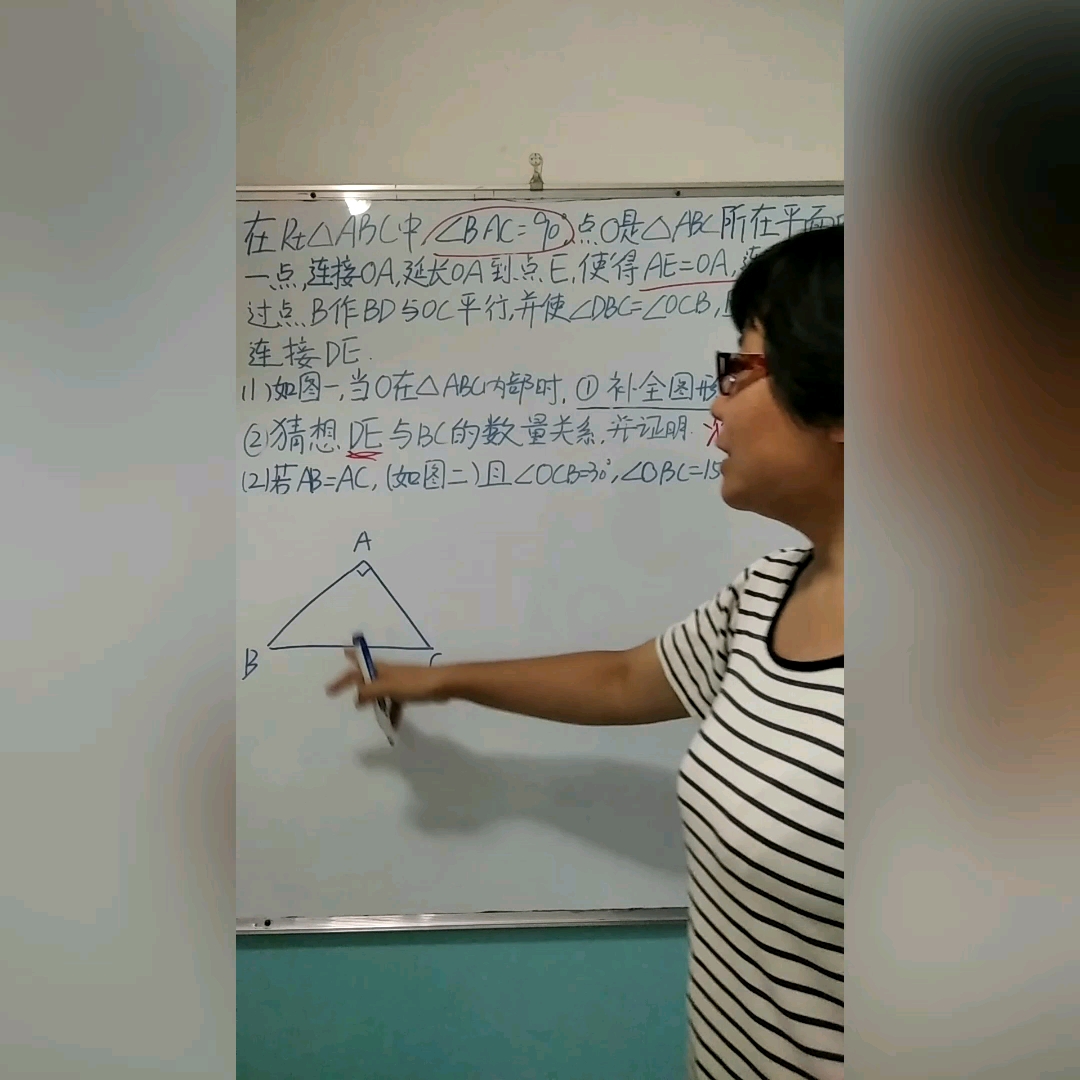 在Rt△ABC中,∠BAC=90°,点O是△ABC所在平面
一点,连接OA,延长OA到点E,使得AE=OA,
过点B作BD与OC平行,并使∠DBC=∠OCB,
连接DE.
(1)如图一,当O在△ABC内部时,①补全图形
②猜想DE与BC的数量关系,并证明.
(2)若AB=AC,(如图二)且∠OCB=30°,∠OBC=15
A
B
C